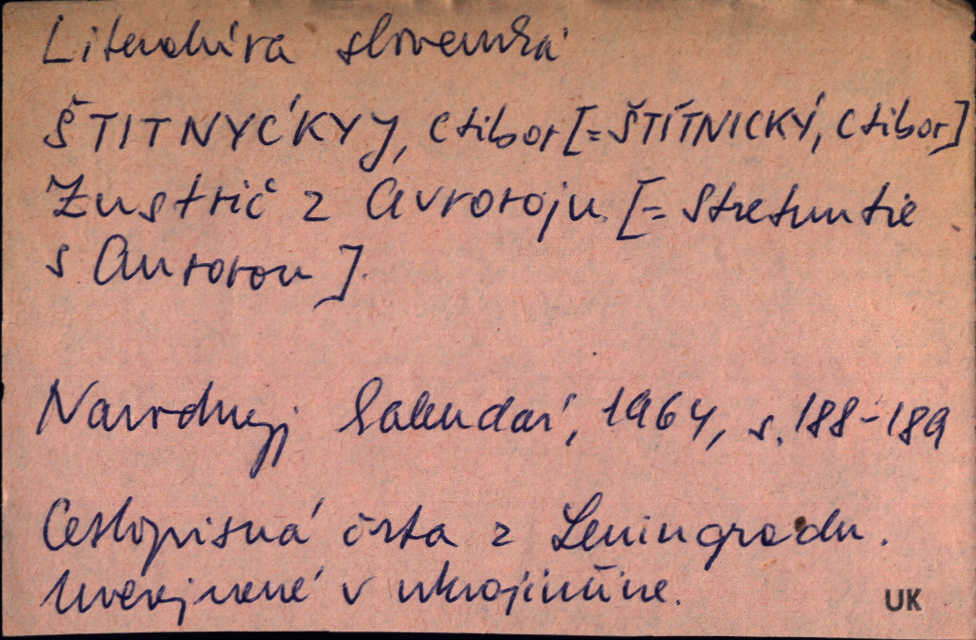 Literatúra slovenská
ŠTITNYC'KYJ, Ctibor [=ŠTÍTNICKÝ, Ctibor]
Zustrič z Avroroju. [= Stretnutie
s Aurorou].
Narodnyj kalendar', 1964, s. 188-189
Cestopisná črta z Leningradu.
Uverejnené v ukrajinčine.
UK